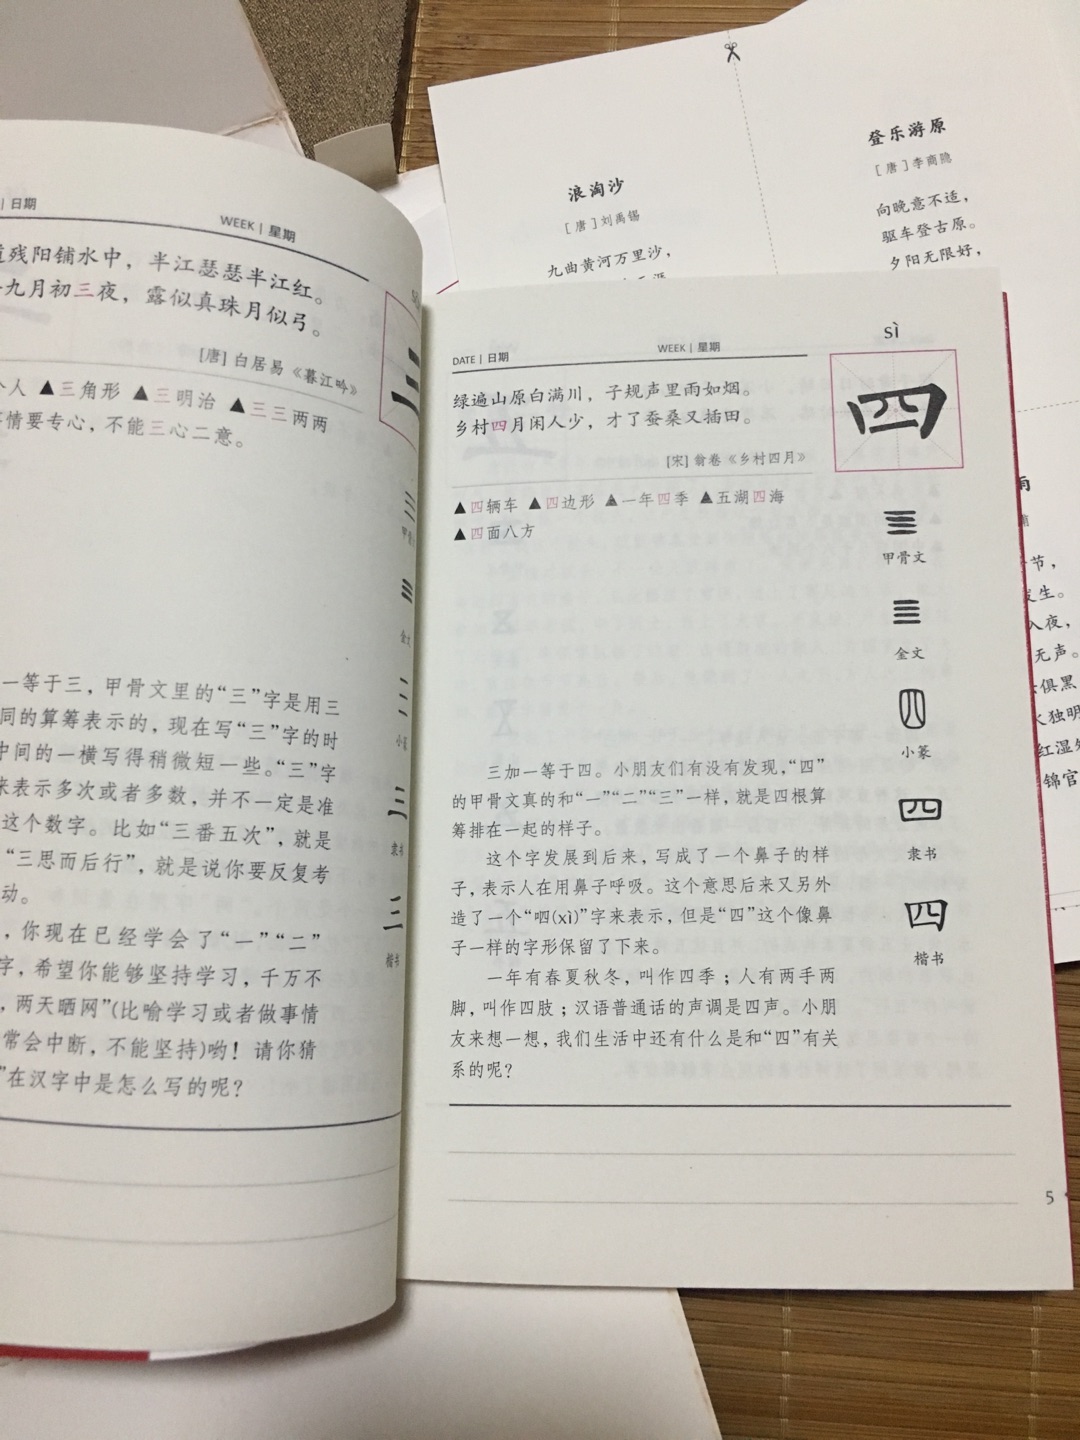 浪淘沙
[唐]刘禹锡
九曲黄河万里沙，
登乐游原
[唐]李商隐
向晚意不适，
驱车登古原。
夕阳无限好，
节，
发生。
入夜，
无声。
俱黑
火独明
红湿
锦官
日期
WEEK | 星期
残阳铺水中，半江瑟瑟半江红。
九月初三夜，露似真珠月似弓。
[唐] 白居易《暮江吟》
人 ▲三角形 ▲三明治 ▲三三两两
情要专心，不能三心二意。
三
甲骨
金文
小篆
隶书
楷书
一等于三，甲骨文里的“三”字是用三
同的算筹表示的，现在写“三”字的时
中间的一横写得稍微短一些。“三”字
来表示多次或者多数，并不一定是准
这个数字。比如“三番五次”，就是
“三思而后行”，就是说你要反复考
动。
，你现在已经学会了“一”“二”
字，希望你能够坚持学习，千万不
，两天晒网”(比喻学习或者做事情
常会中断，不能坚持)哟！请你猜
”在汉字中是怎么写的呢？
DATE | 日期
WEEK | 星期
sì
四
绿遍山原白满川，子规声里雨如烟。
乡村四月闲人少，才了蚕桑又插田。
[宋] 翁卷《乡村四月》
▲四辆车 ▲四边形 ▲一年四季 ▲五湖四海
▲四面八方
甲骨文
金文
小篆
四
隶书
四
楷书
三加一等于四。小朋友们有没有发现，“四”
的甲骨文真的和“一”“二”“三”一样，就是四根算
筹排在一起的样子。
这个字发展到后来，写成了一个鼻子的样
子，表示人在用鼻子呼吸。这个意思后来又另外
造了一个“呬(xì)”字来表示，但是“四”这个像鼻
子一样的字形保留了下来。
一年有春夏秋冬，叫作四季；人有两手两
脚，叫作四肢；汉语普通话的声调是四声。小朋
友来想一想，我们生活中还有什么是和“四”有关
系的呢？
5